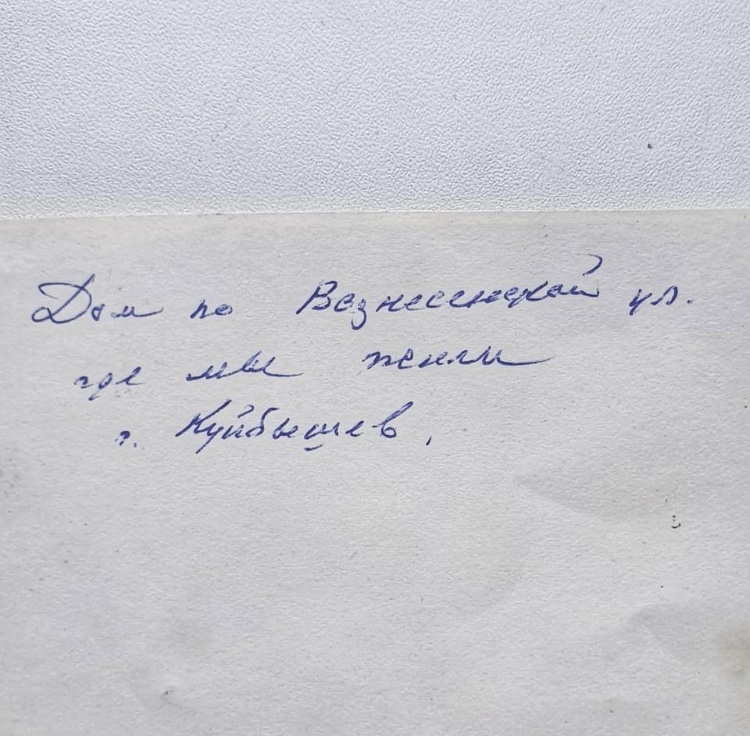 Дом по Вознесенской ул.
где мы жили
г. Куйбышев,